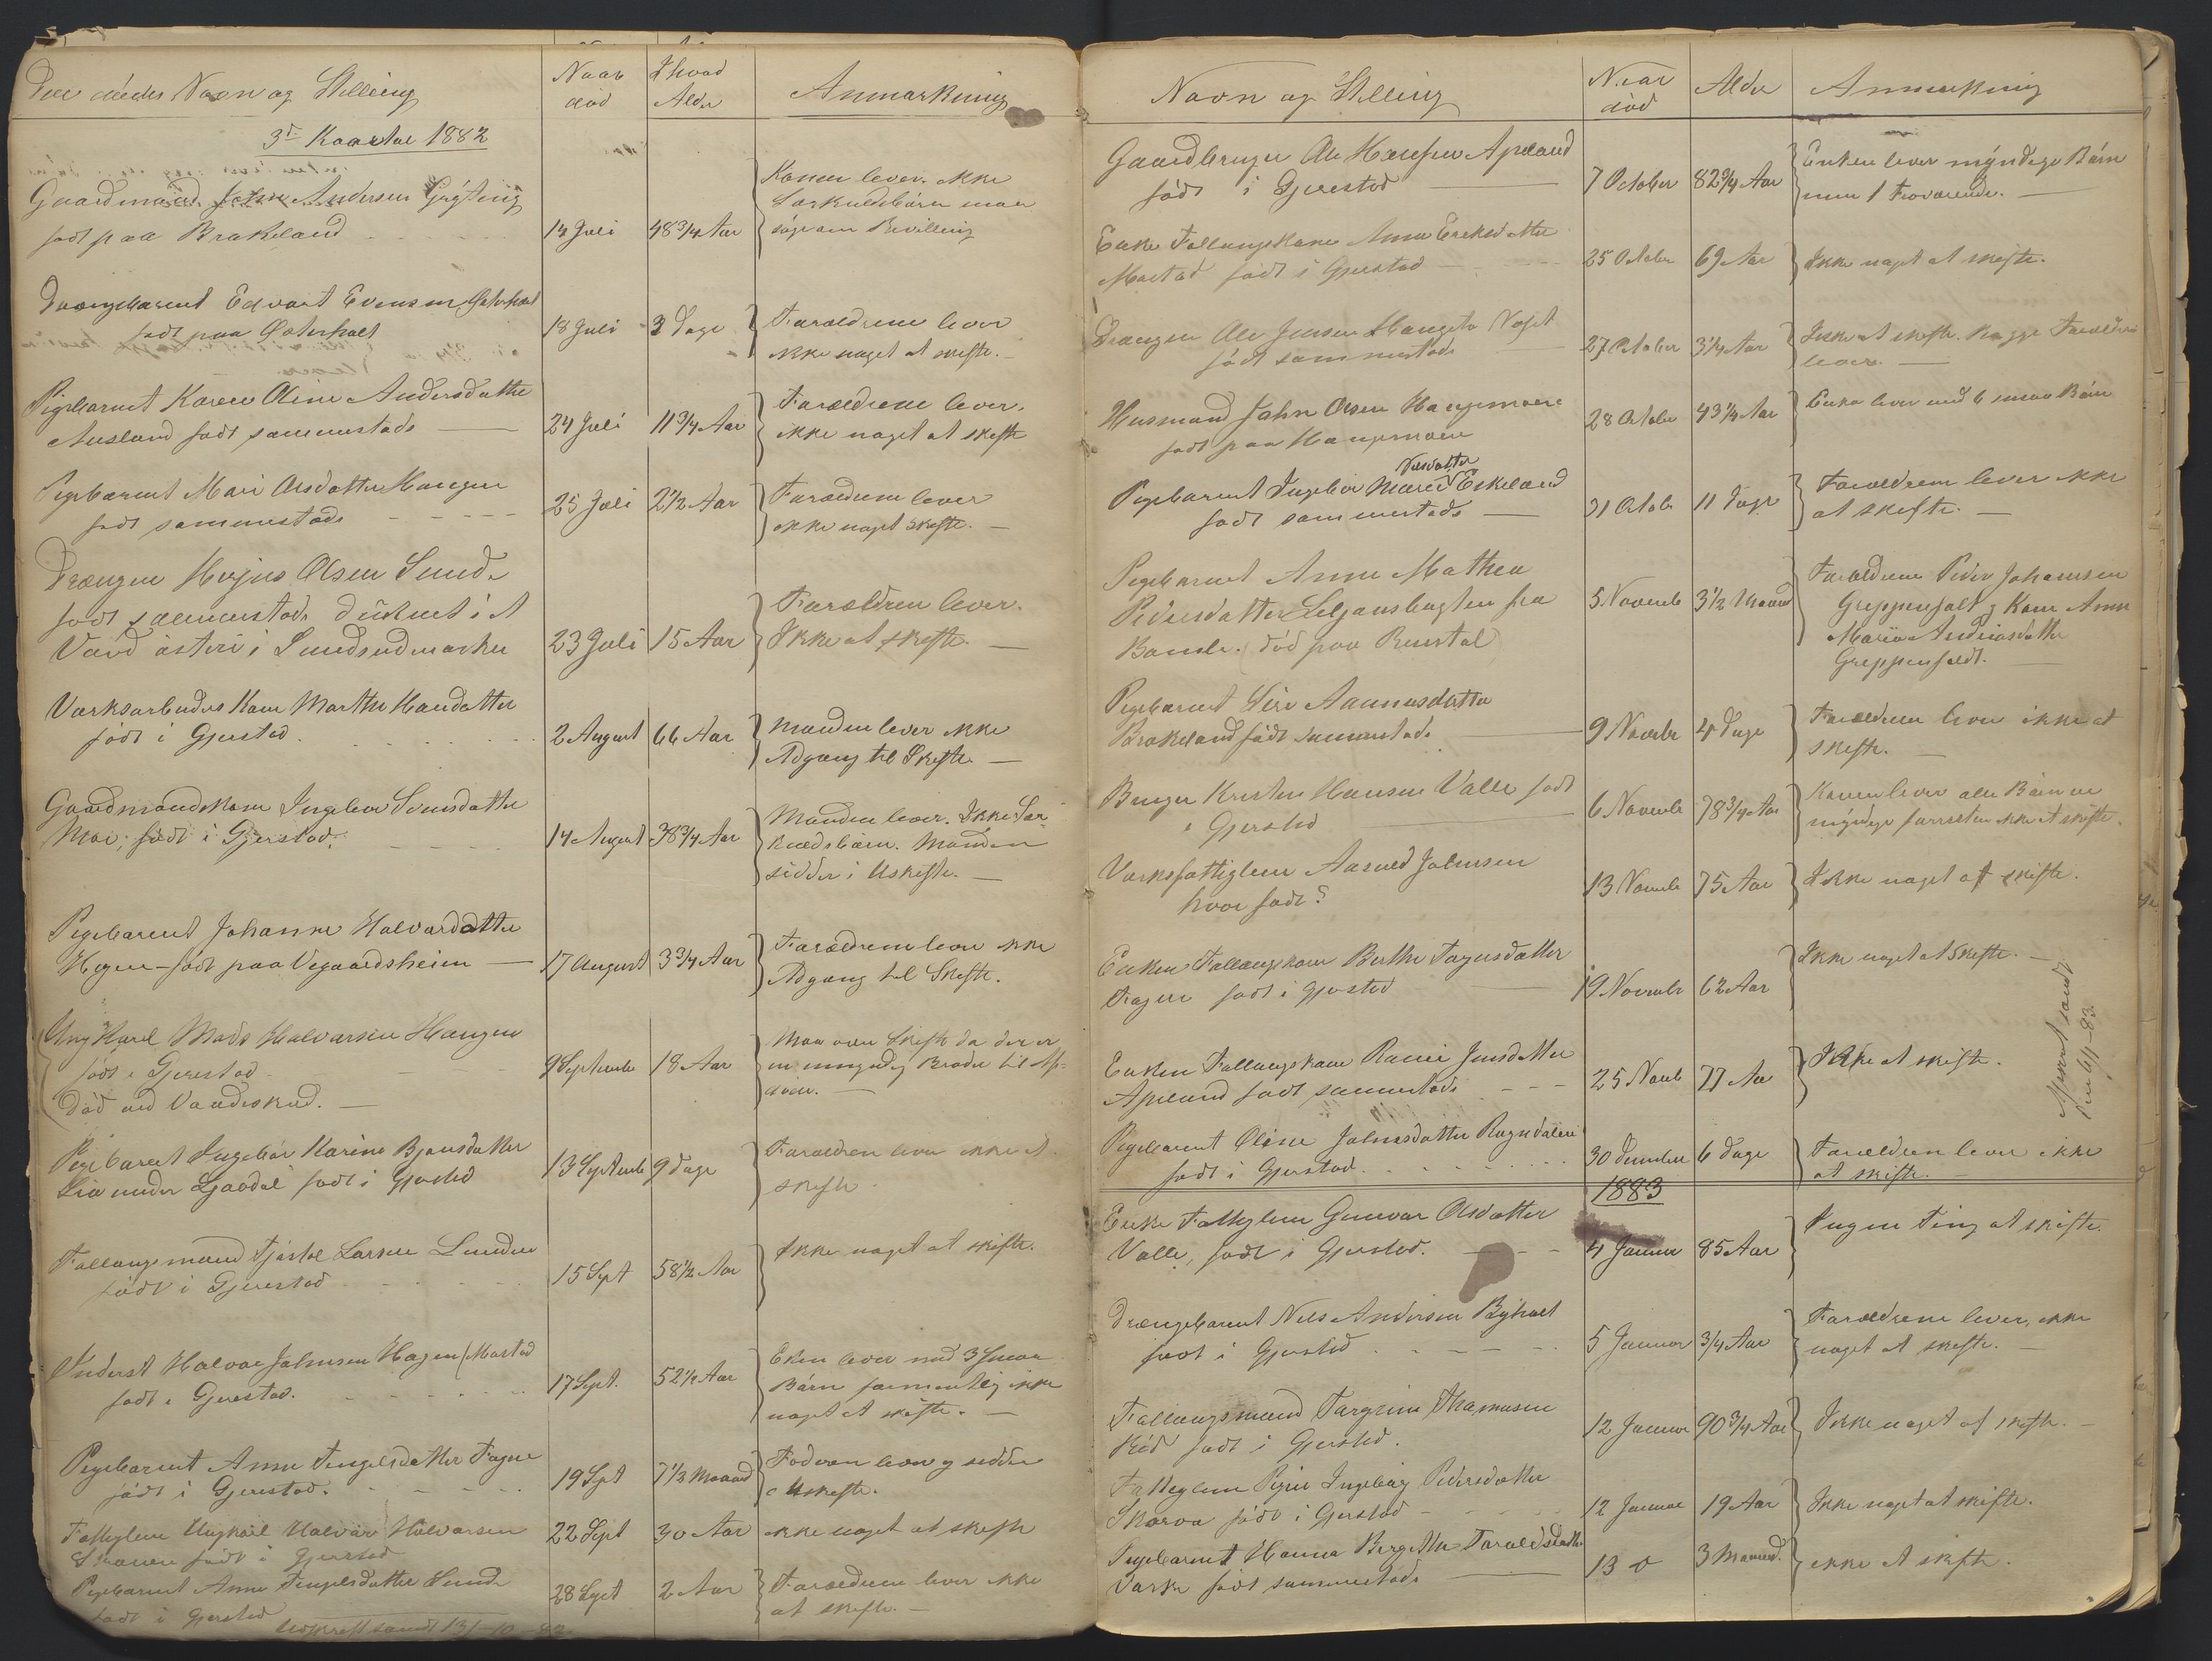 Den dødes Navn og Stilling
Naar død
I hvad Alder
Anmærkning
3d Kvartal 1882
Gaardmand John Andersen
født paa Brakeland
14 Juli
48 3/4 Aar
Konen lever. ikke
Særkuldsbørn maa
søge om Bevilling
Drængebarnet Edvart Evensen Østerholt
født paa Østerholt
18 Juli
3 Dage
Forældrene lever
ikke noget at skifte.
Pigebarnet Karen Oline Andersdatter
Ausland født sammesteds
24 Juli
11 3/4 Aar
Forældrene lever.
ikke noget at skifte
Pigebarnet Mari Olsdatter Haugen
født sammesteds
25 Juli
2 1/2 Aar
Forældrene lever
ikke noget skifte.
Drængen Olsen Sunde
født sammesteds druknet i et
Vand østeri i Sundsudmarken
23 Juli
15 Aar
Forældren lever.
Ikke at skifte.
Værksarbeiders Kone Marthe Hansdatter
født i Gjerestad
2 August
66 Aar
Manden lever ikke
Adgang til Skifte
Gaardmandskone Ingebor Svensdatter
Moe, født i Gjerstad.
14 August
38 3/4 Aar
Manden lever. Ikke Sær-
kuldsbørn. Manden
sidder i Uskifte.
Pigebarnet Johanne Halvorsdatter
født paa Vegaardsheien
17 August
3 3/4 Aar
Forældrene lever ikke
Adgang til Skifte.
Ung Karl Mads Halvorsen Haugen
født i Gjerestad
Død ved Vaadeskud.
9 Septembr
18 Aar
Maa være Skifte da der er
en umyndig Broder til
Pigebarnet Ingebor Karine Bjønsdatter
Lia under født i Gjerestad
13 Septembr
9 Dage
Forældren lever ikke at
skifte
Follaugsmand Tjøstel Larsen Lunden
født i Gjerestad
15 Sept
58 1/2 Aar
Ikke noget at skifte.
Inderst Halvor Johnsen Hagen (Mostad
født i Gjerestad.
17 Sept.
52 1/4 Aar
Enken lever med 3 smaa
Børn formentlig ikke
noget at skifte.
Pigebarnet Anne Tengelsdatter Fogne
født i Gjerestad.
19 Sept
7 1/2 Maaned
Faderen lever og sidder
i Uskifte.
Fattiglem Ungkarl Halvor Halvorsen
født i Gjerestad
22 Sept
30 Aar
ikke noget at skifte
Pigebarnet Anne Tengelsdatter Sunde
født i Gjerstad
28 Sept
2 Aar
Forældrene lever ikke
at skifte.
sendt 13/10-82
Navn og Stilling
Naar død
Alder
Anmerkning
Gaardbruger Ole Apeland
født i Gjerestad
7 October
82 3/4 Aar
Enken lever myndige Børn
Enke Follaugskone Anne Ereksdatter
Mostad født i Gjerstad
25 October
69 Aar
Ikke noget at skifte.
Drængen Ole Jensen
født sammesteds
27 October
3 1/4 Aar
Ikke at skifte. Begge Forældre
lever.
Husmand John Olsen Haugemoen
født paa Haugemoen
28 October
43 1/4 Aar
Enke lever med 6 smaa Børn
Nilsdatter
Pigebarnet Ingebor Maria Eskeland
født sammesteds
31 Octobr
11 Dage
Forældrene lever ikke
at skifte.
Pigebarnet Anne Mathea
Pedersdatter fra
Bamle. (død paa
5 Novembr
3 1/2 Maaned
Forældrene Peder Johannsen
og Kone Anne
Maria Andreasdatter
Pigebarnet Siri Aanonsdatter
Brakeland født sammesteds
9 Novembr
4 Dage
Forældrene lever ikke at
skifte.
Kristen Hansen Valle født
i Gjersted
6 Novembr
78 3/4 Aar
Konen lever alle Børn er
myndige forresten ikke at skifte.
Værksfattiglem Johnsen
hvor født?
13 Novembr
75 Aar
Ikke noget at skifte.
Enken Follaugskone Berthe Tagesdatter
født i Gjersted
19 Novembr
62 Aar
Ikke noget at skifte.
Enken Follaugskone Jensdatter
Apeland født sammesteds
25 Novb
77 Aar
Ikke at skifte.
sendt
83
Pigebarnet Oline Johnsdatter
født i Gjerstad
30 December
6 Dage
Forældren lever ikke
at skifte.
1883
Enke Fattiglem Gunvor Olsdatter
Valle, født i Gjersted.
4 Januar
85 Aar
Ingen Ting at skifte
Drængebarnet Nils Andersen
født i Gjerstad
5 Januar
3/4 Aar
Forældrene lever, ikke
noget at skifte.
Follaugsmand Targrim Thomasen
født i Gjersted.
12 Januar
90 3/4 Aar
Ikke noget at skifte.
Fattiglem Pigen Ingeborg Pedersdatter
født i Gjerstad
12 Januar
19 Aar
Ikke noget at skifte.
Pigebarnet Hanna Bergitte Taraldsdatter
født sammesteds
13 d
3 Maaned.
ikke at skifte.